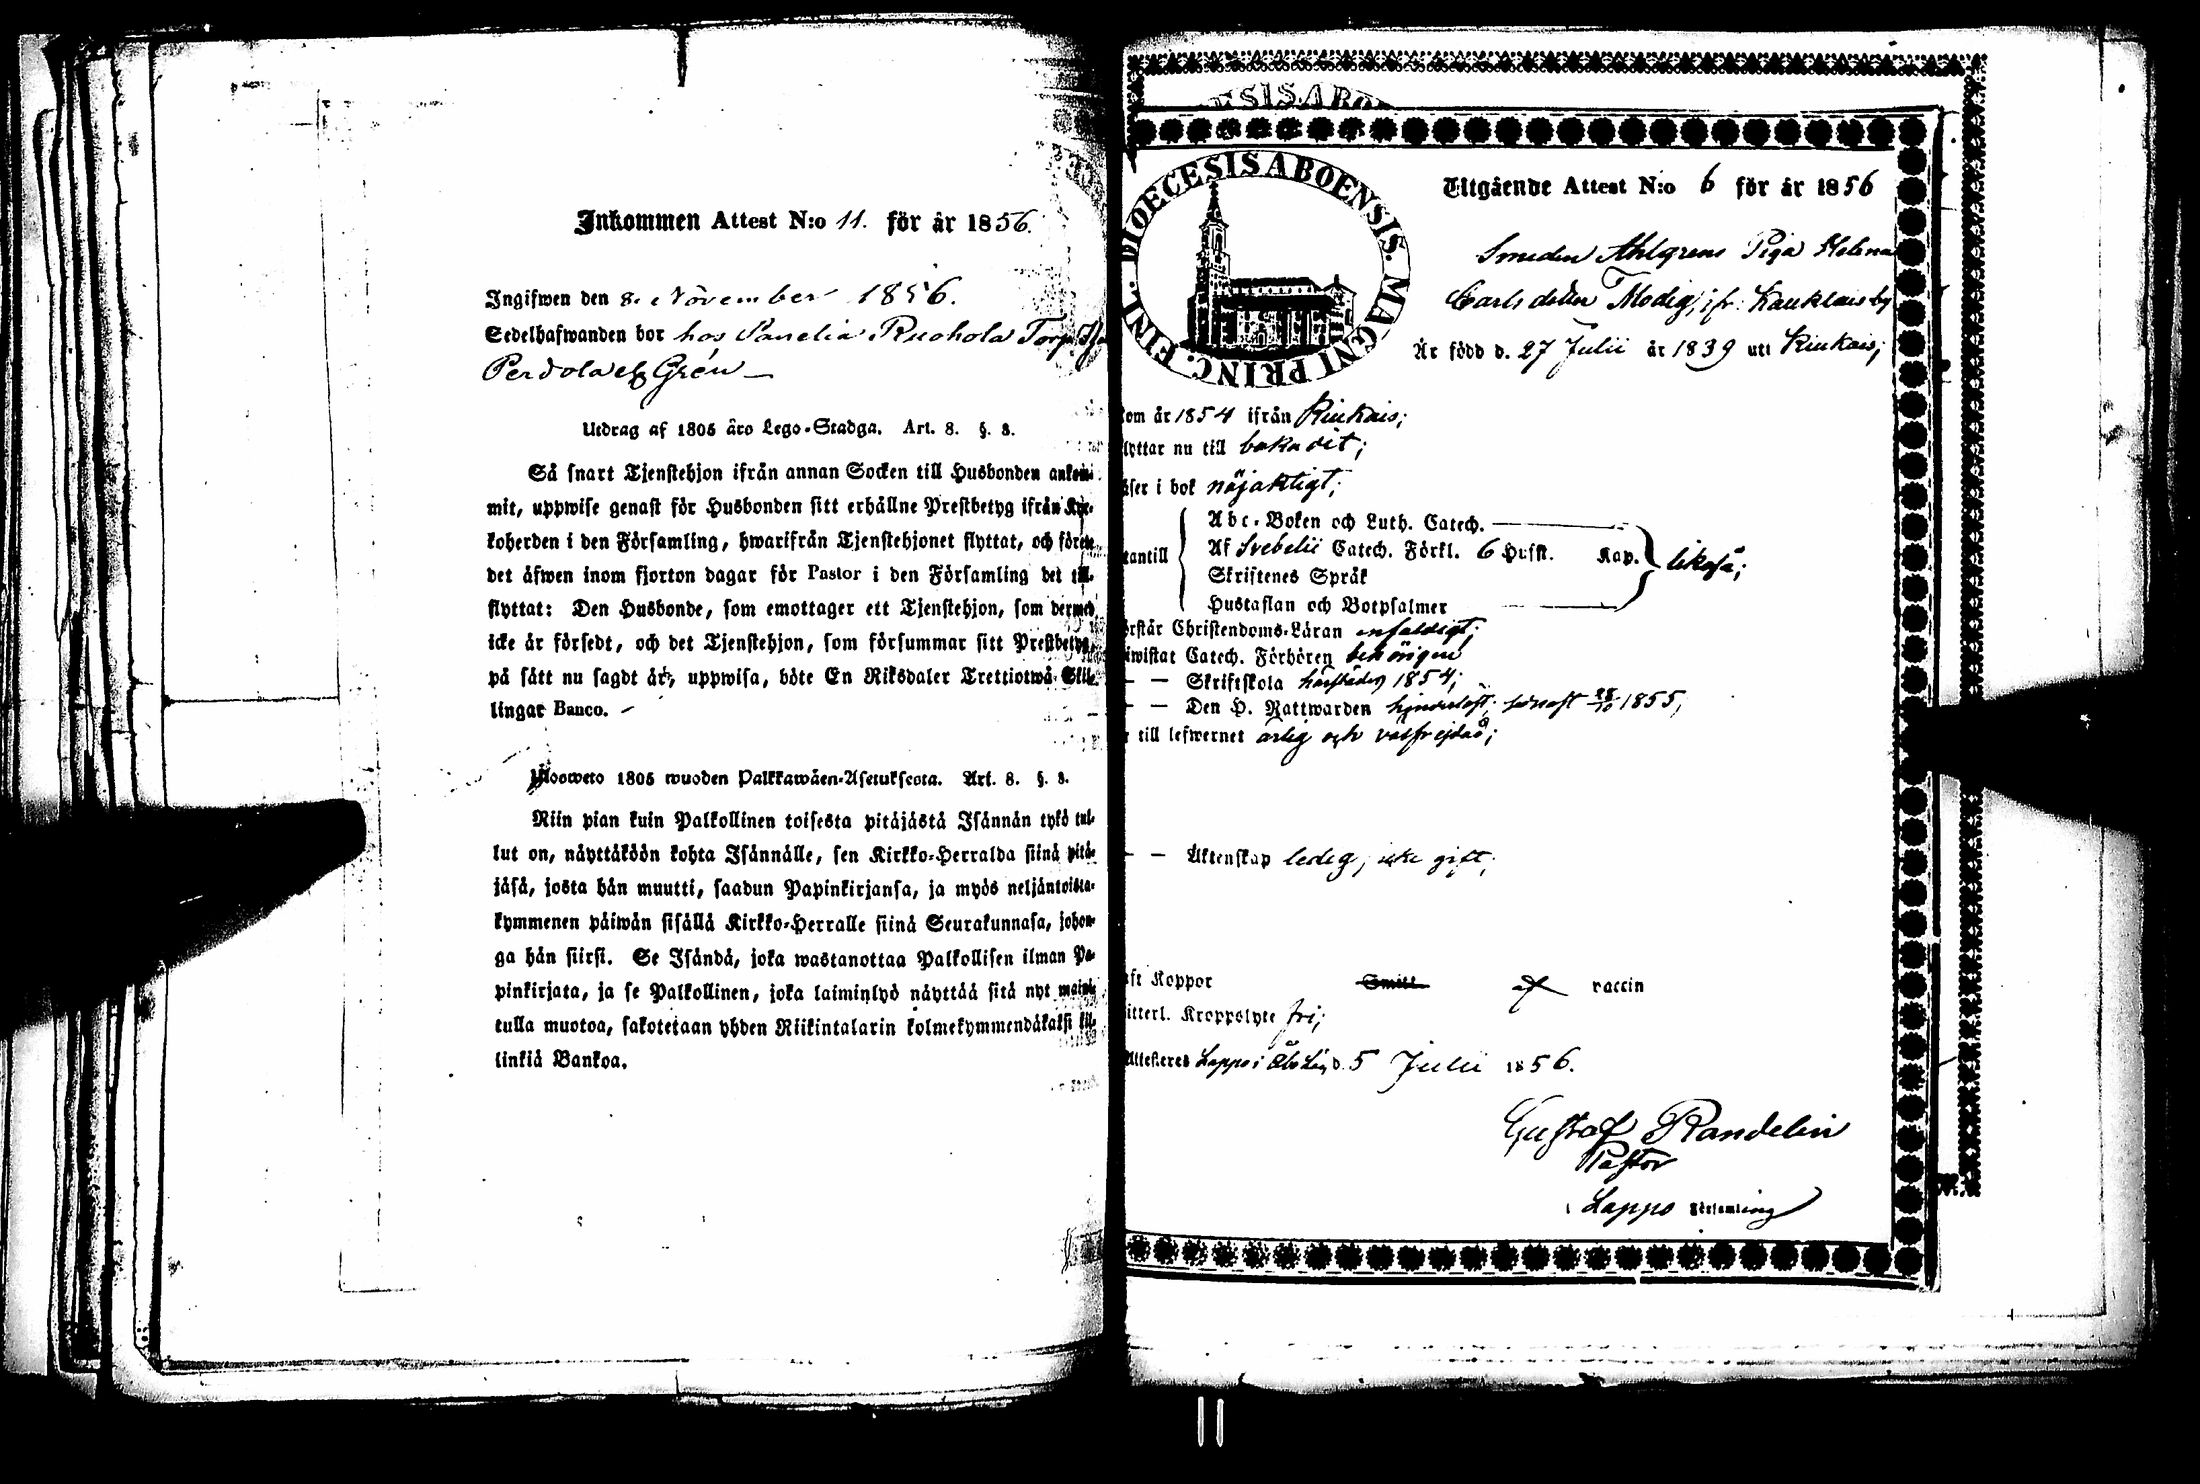 Inkommen Attest N:o 11. för år 1856.
Ingifwen den 8. November 1856.
Sedelhafwanden bor hos Panelia Ruohola Torp
Perdola Grén —
Utdrag af 1805 års Lego-Stadga. Art. 8. §. 8.
Så snart Tjenstehjon ifrån annan Socken till Husbonden ankom-
mit, uppwise genast för Husbonden sitt erhållne Prestbetyg ifrån Kyr-
koherden i den Församling, hwarifrån Tjenstehjonet flyttat, och förete
det äfwen inom fjorton dagar för Pastor i den Församling det till-
flyttat: Den Husbonde, som emottager ett Tjenstehjon, som dermed
icke är försedt, och det Tjenstehjon, som försummar sitt Prestbetyg,
på sätt nu sagdt är, uppwisa, böte En Riksdaler Trettiotwå Skil-
lingar Banco.
Ulosweto 1805 wuoden Palkkawäen-Asetuksesta. Art. 8. §. 8.
Niin pian kuin Palkollinen toisesta pitäjästä Isännän tykö tul-
lut on, näyttäköön kohta Isännälle, sen Kirkko-Herralda siinä pitä-
jäsä, josta hän muutti, saadun Papinkirjansa, ja myös neljäntoista-
kymmenen päiwän sisällä Kirkko-Herralle siinä Seurakunnasa, johon-
ga hän siirsi. Se Isändä, joka wastanottaa Palkollisen ilman Pa-
pinkirjata, ja se Palkollinen, joka laiminlyö näyttää sitä nyt maini-
tulla muotoa, sakotetaan yhden Riikintalarin kolmekymmendäkaksi kil-
linkiä Bankoa.
ESIS.ABO
DIOECESIS ABOENSIS. MAGNI PRINC. FINL.
Utgående Attest N:o 6 för år 1856
Smeden Ahlgrens Piga Helena
Carlsdotter Modig, ifr. Kauklais by
Är född d. 27 Julii år 1839 uti Kiukais;
kom år 1854 ifrån Kiukais;
flyttar nu till baka dit;
läser i bok nöjaktigt;
utantill
Abc-Boken och Luth. Catech.
Af Svebelii Catech. Förkl. 6 Hufst. Kap.
Skriftenes Språk
Hustaflan och Botpsalmer
likaså;
förstår Christendoms-Läran enfaldigt;
bewistat Catech. Förhören behörigen
— — Skriftskola härstädes 1854;
— — Den H. Nattwarden hinderlöst, senast 28/10 1855,
är till lefwernet ärlig och välfrejdad;
— — Äktenskap ledig, icke gift;
haft Koppor Smitt af vaccin
witterl. Kroppslyte fri;
Attesteres Lappo i Åbo Län, d. 5 Julii 1856.
Gustaf Randelin
Pastor
i Lappo Församling